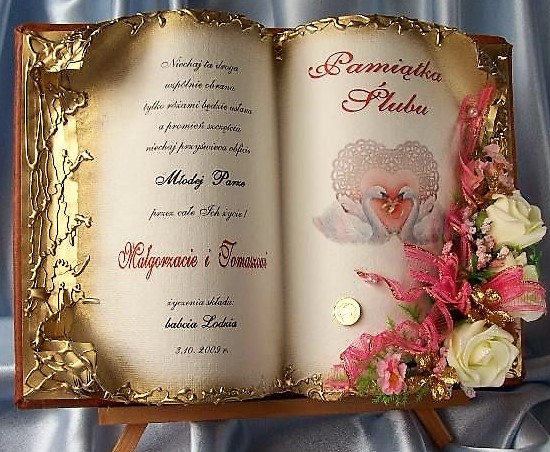 Niechaj ta droga
wspólnie obrana
tylko różami będzie usłana
a promień szczęścia
niechaj przyświeca obficie
Młodej Parze
przez całe Ich życie!
Małgorzacie i Tomaszowi
życzenia składa:
babcia Lodzia
3.10. 2009 r.
Pamiątka
Ślubu